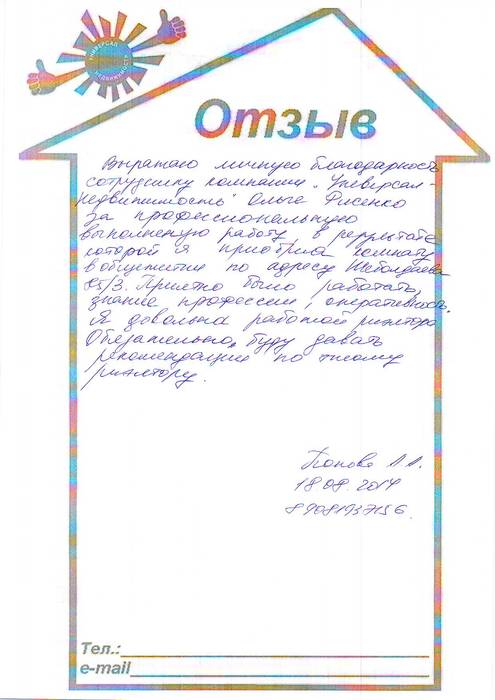 УНИВЕРСАЛ
НЕДВИЖИМОСТЬ
Отзыв
Выражаю личную благодарность
сотруднику компании "Универсал-
недвижимость" Ольге Фисенко
за профессиональную
выполненую работу, в результате
которой я приобрела комнату
в общежитии по адресу
85/3. Приятно было работать,
знание профессии, оперативность.
Я довольна работой риэлтора
Обязательно, буду давать
рекомендации по этому
риэлтору.
Попова Л.А.
18.08.2014
89081937156.
Тел.:
e-mail